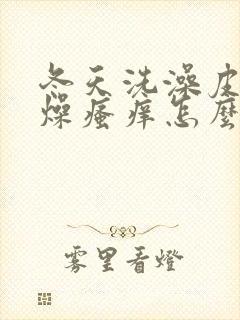 冬天洗澡皮
燥瘙痒怎麼
雾里看燈